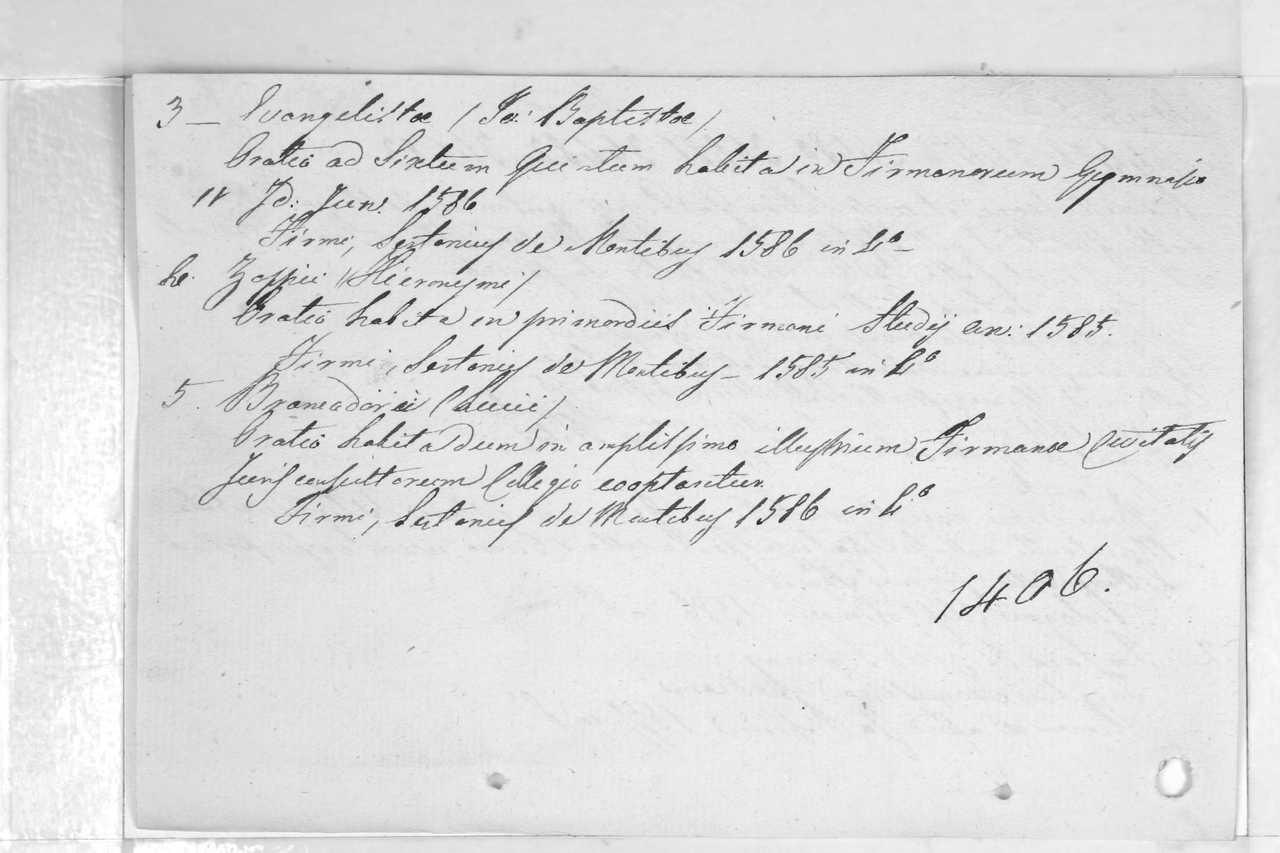 3 — Evangelistæ (Jo: Baptistæ)
Oratio ad Sixtum Quintum habita in Firmanorum Gymnasio
IV Id: Jun. 1586
Firmi, Sertorius de Montibus 1586 in 4°—
4. Zoppii (Hieronymi)
Oratio habita in primordiis Firmani Studij an: 1585.
Firmi, Sertorius de Montibus — 1585 in 4°
5. (Lucii)
Oratio habita dum in amplissimo illustrium Firmanæ Civitatis
Jurisconsultorum Collegio cooptaretur
Firmi, Sertorius de Montibus 1586 in 4°
1406.